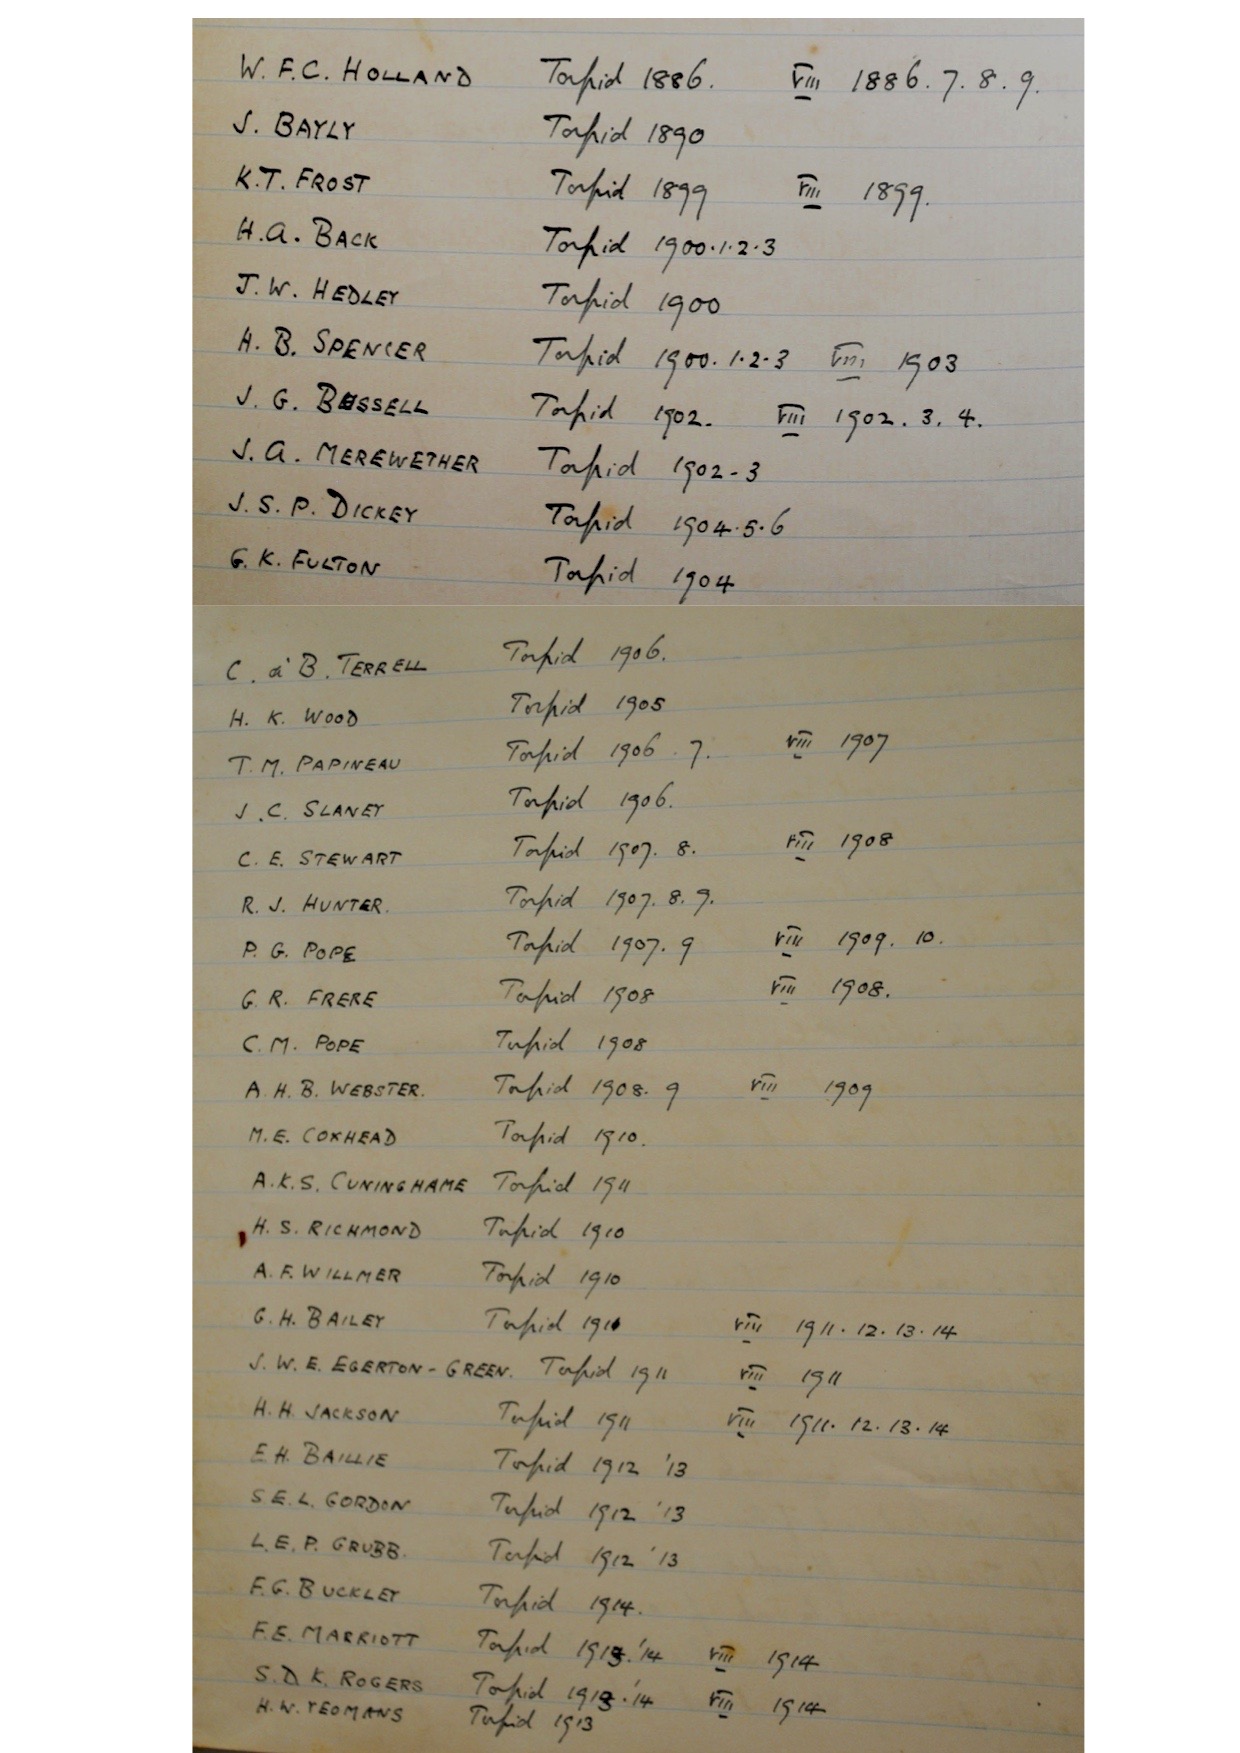 W. F. C. HOLLAND Torpid 1886. VIII 1886. 7. 8. 9.
J. BAYLY Torpid 1890
K. T. FROST Torpid 1899 VIII 1899.
H. A. BACK Torpid 1900.1.2.3
J. W. HEDLEY Torpid 1900
H. B. SPENCER Torpid 1900. 1.2.3 VIII 1903
J. G. BUSSELL Torpid 1902. VIII 1902. 3. 4.
J. A. MEREWETHER Torpid 1902-3
J. S. P. DICKEY Torpid 1904.5.6
G. K. FULTON Torpid 1904
C. à B. TERRELL Torpid 1906.
H. K. WOOD Torpid 1905
T. M. PAPINEAU Torpid 1906 . 7. VIII 1907
J. C. SLANEY Torpid 1906.
C. E. STEWART Torpid 1907. 8. VIII 1908
R. J. HUNTER. Torpid 1907. 8. 9.
P. G. POPE Torpid 1907. 9 VIII 1909. 10.
G. R. FRERE Torpid 1908 VIII 1908.
C. M. POPE Torpid 1908
A. H. B. WEBSTER. Torpid 1908. 9 VIII 1909
M. E. COXHEAD Torpid 1910.
A. K. S. CUNINGHAME Torpid 1911
H. S. RICHMOND Torpid 1910
A. F. WILLMER Torpid 1910
G. H. BAILEY Torpid 1911 VIII 1911. 12. 13. 14
J. W. E. EGERTON-GREEN. Torpid 1911 VIII 1911
H. H. JACKSON Torpid 1911 VIII 1911. 12. 13. 14
E. H. BAILLIE Torpid 1912 '13
S. E. L. GORDON Torpid 1912 '13
L. E. P. GRUBB. Torpid 1912 '13
F. G. BUCKLEY Torpid 1914.
F. E. MARRIOTT Torpid 1913. '14 VIII 1914
S. D. K. ROGERS Torpid 1913. '14 VIII 1914
H. W. YEOMANS Torpid 1913